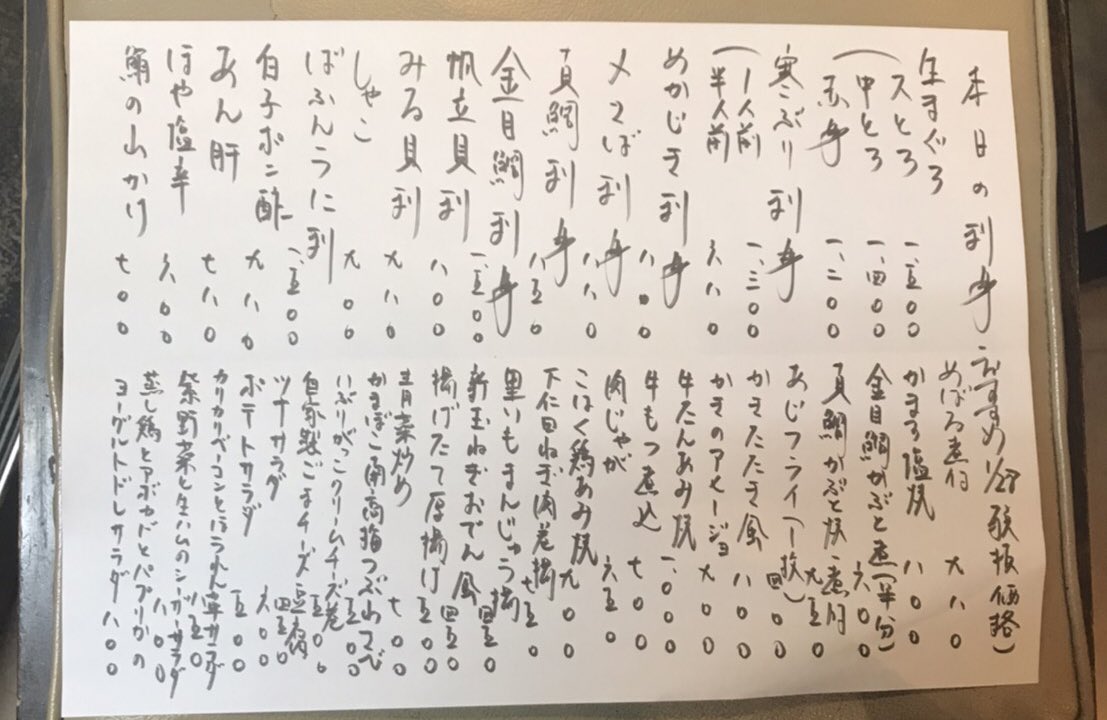 本日の刺身
生まぐろ
大とろ 一、五〇〇
中とろ 一、四〇〇
赤身 一、二〇〇
寒ぶり刺身
一人前 一、三〇〇
半人前 六八〇
めかじき刺身 八〇〇
〆さば刺身 八八〇
真鯛刺身 八五〇
金目鯛刺身 一、五〇〇
帆立貝刺 八〇〇
みる貝刺 九八〇
しゃこ 九〇〇
ばふんうに刺 一、五〇〇
白子ポン酢 九八〇
あん肝 七八〇
ほや塩辛 六〇〇
鮪の山かけ 七〇〇
おすすめ 1/28 (税抜価格)
めばる煮付 九八〇
かまとろ塩焼 八〇〇
金目鯛かぶと煮(半分) 六〇〇
真鯛かぶと焼・煮付 九五〇
あじフライ(一枚) 四〇〇
かきたたき風 八〇〇
かきのアヒージョ 九〇〇
牛たんあみ焼 一、〇〇〇
牛もつ煮込 七〇〇
肉じゃが 六五〇
こはく鶏あみ焼 九〇〇
下仁田ねぎ肉巻揚 七五〇
里いもまんじゅう揚 四五〇
新玉ねぎおでん風 四五〇
揚げたて厚揚げ 五〇〇
青菜炒め 七〇〇
かまぼこ南高梅つぶわさび 五〇〇
いぶりがっこクリームチーズ巻 五〇〇
自家製ごまチーズ豆腐 四五〇
ツナサラダ 六〇〇
ポテトサラダ 五〇〇
カリカリベーコンとほうれん草サラダ 八五〇
紫野菜と生ハムのシーザーサラダ 八〇〇
蒸し鶏とアボカドとパプリカの
ヨーグルトドレサラダ 八〇〇